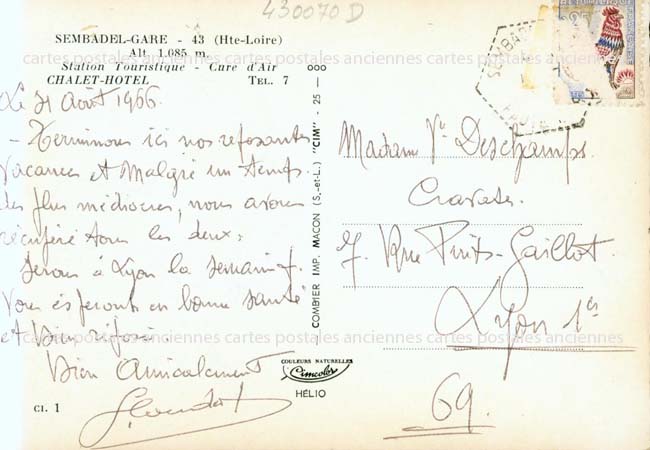 430070 D
SEMBADEL-GARE - 43 (Hte-Loire)
Alt. 1.085 m.
Station Touristique - Cure d'Air
CHALET-HOTEL TEL. 7
Le 31 Août 1966
- Terminons ici nos reposantes
vacances et Malgré un temps
des plus médiocres, nous avons
récupéré tous les deux.
Serons à Lyon la semaine
Vous espérons en bonne santé
et bien
Bien Amicalement
Cl. 1
COMBIER IMP. MACON (S.-et-L.) "CIM" - 25 -
COULEURS NATURELLES
Cimcolor
HÉLIO
SEMBADEL
HAUTE
Madame Vve Deschamps
Cravates
7. Rue Puits-Gaillot.
Lyon 1er
69.
cartes postales anciennes cartes postales anciennes cartes postales anciennes
cartes postales anciennes cartes postales anciennes cartes postales anciennes